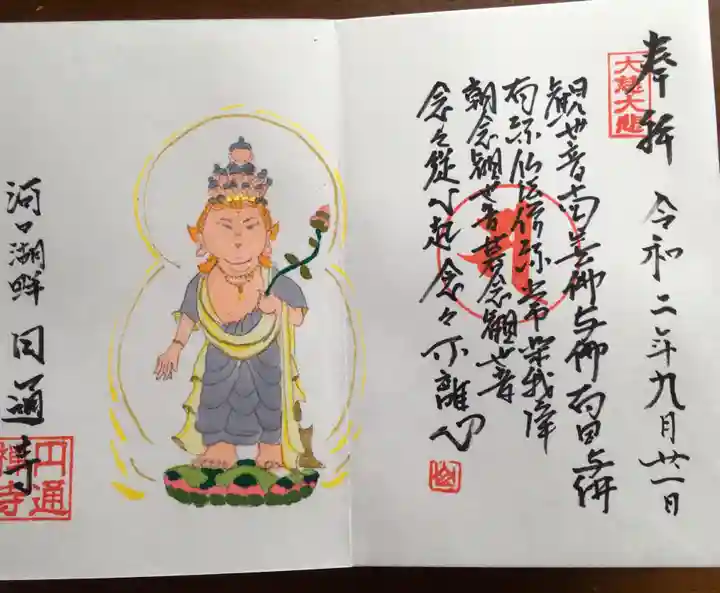 奉拝 令和二年九月廿一日
大慈大悲
観世音南無佛与佛有因与佛
有縁仏法僧縁常楽我浄
朝念観世音暮念観世音
念々従心起念々不離心
河口湖畔 円通寺
円通禅寺